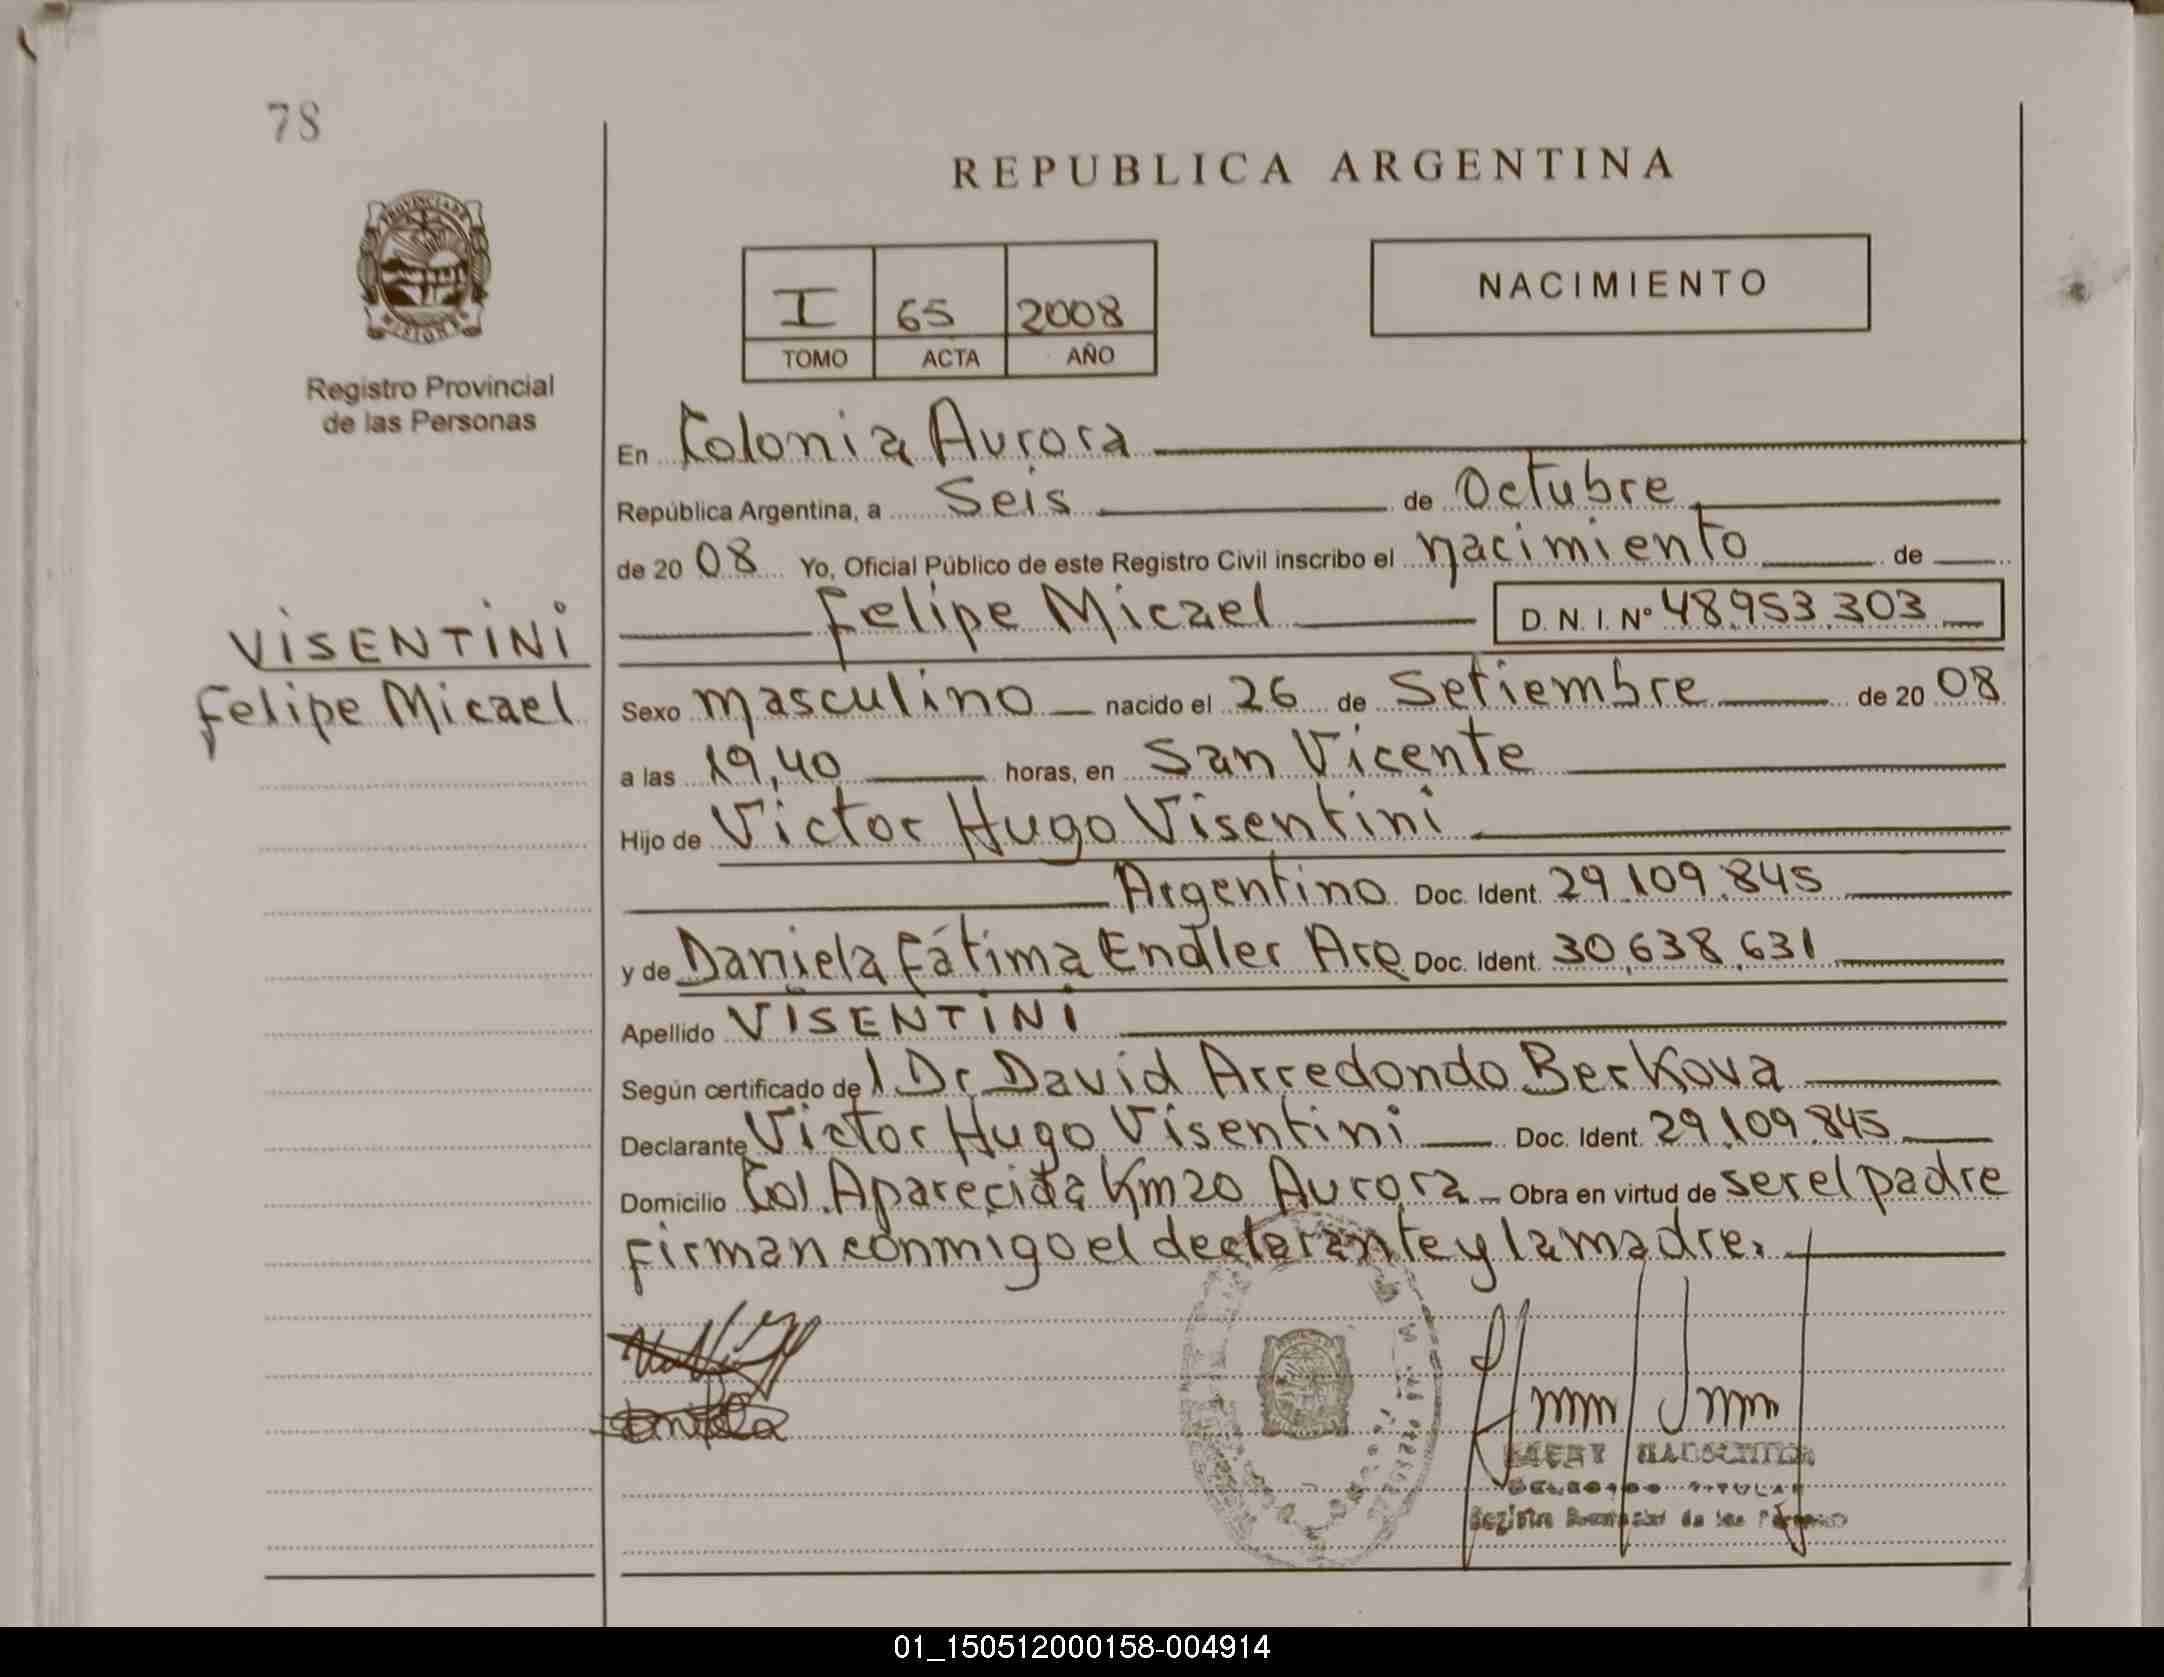 78
REPUBLICA ARGENTINA
PROVINCIA DE
MISIONES
I 65 2008
TOMO ACTA AÑO
NACIMIENTO
Registro Provincial
de las Personas
VISENTINI
Felipe Micael
En Colonia Aurora
República Argentina, a Seis de Octubre
de 20 08 Yo, Oficial Público de este Registro Civil inscribo el nacimiento de
Felipe Micael D. N. I. Nº 48.953.303
Sexo masculino nacido el 26 de Setiembre de 20 08
a las 19,40 horas, en San Vicente
Hijo de Victor Hugo Visentini
Argentino Doc. Ident. 29.109.845
y de Daniela Fátima Endler Arg Doc. Ident. 30.638.631
Apellido VISENTINI
Según certificado del Dr David Arredondo Berkova
Declarante Victor Hugo Visentini Doc. Ident. 29.109.845
Domicilio Col. Aparecida Km 20 Aurora Obra en virtud de ser el padre
firman conmigo el declarante y la madre.
Registro Provincial de las Personas
01_150512000158-004914